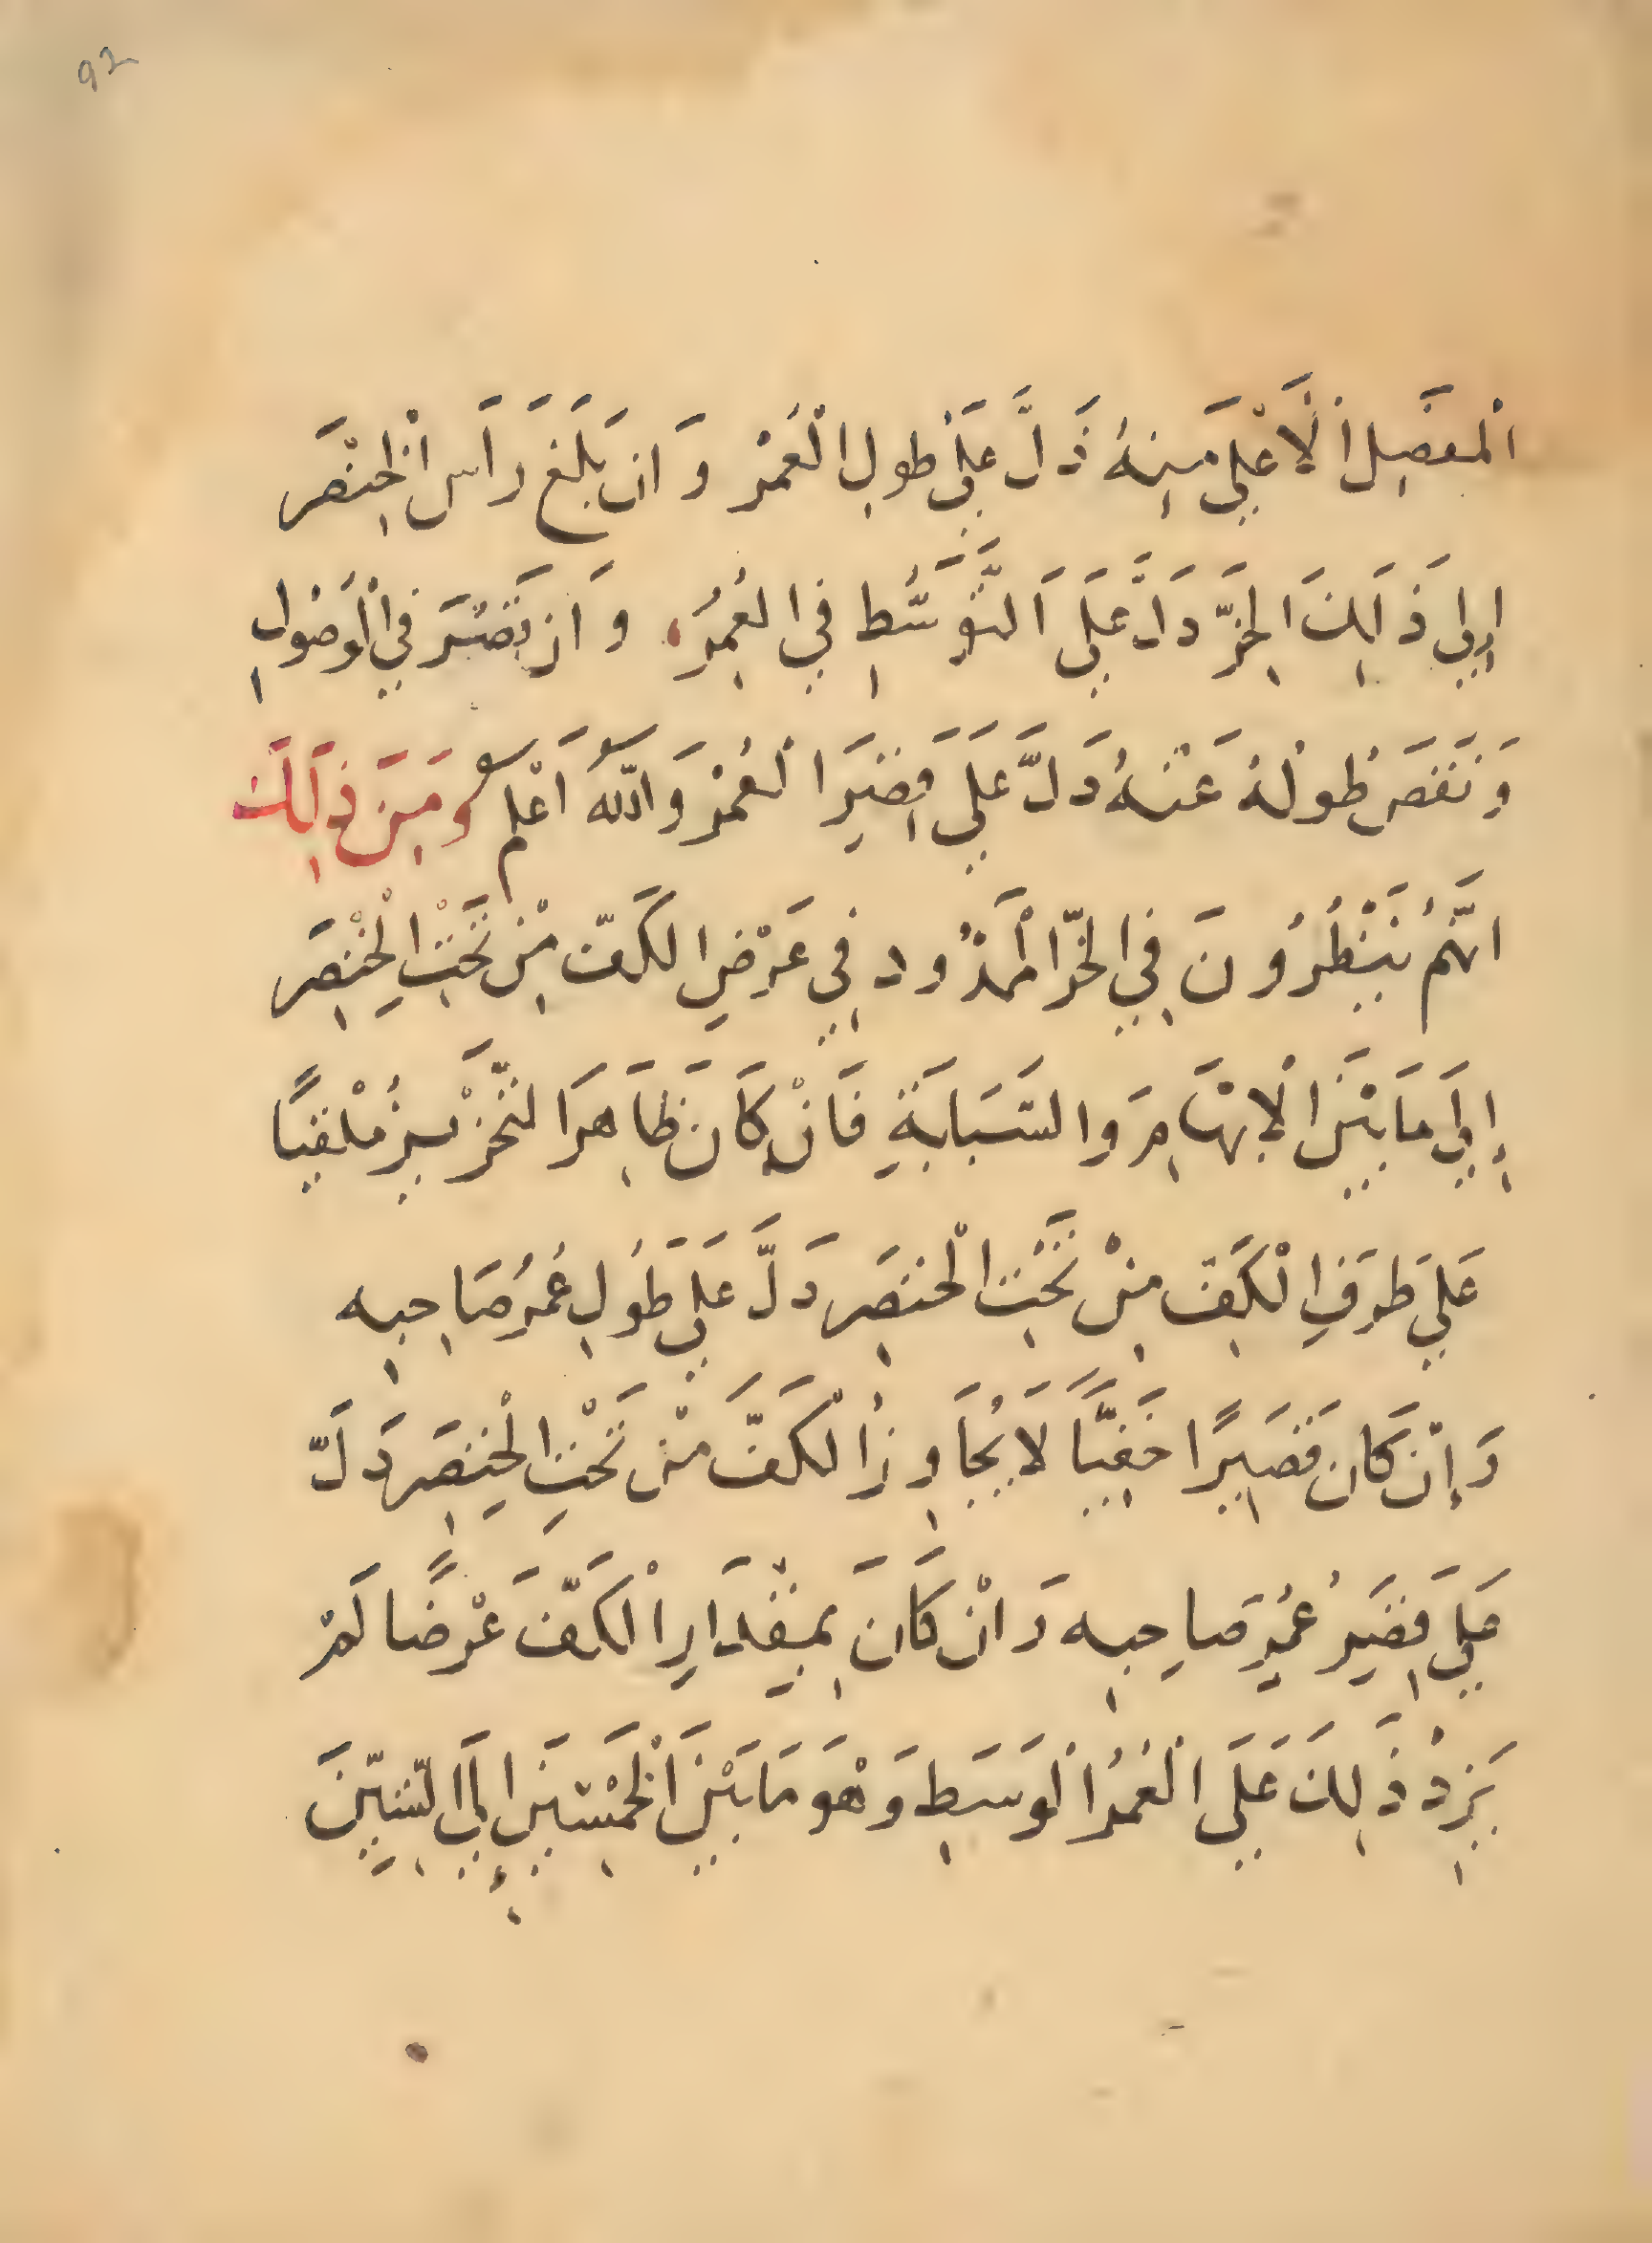 92
المفصل الأعلى منه دَلَّ على طول العُمْر وَان بَلَغ رَأس الخِنْصَر
إِلى ذَلِكَ الحَزّ دَلَّ عَلَى التَّوَسُّطِ في العُمرُ وَان قَصُرَ في الوُصُولِ
وَنَقَصَ طُولهُ عَنْهُ دَلَّ عَلَى قِصَرِ العُمْر وَاللّه اَعْلم وَمِنَ ذَلِكَ
انَّهُمُ يَنْظُرُونَ فِي الحَزّ المَمْدُود فِي عَرْضِ الكَفّ مِنْ تَحْتِ الْخِنْصَر
إِلَى مَا بَيْنَ الْابهَامِ وَالسَّبَابَةِ فَانْ كَانَ ظَاهِرَ التحَزّيز مُلْفيًا
عَلَى طَرَفِ الْكَفّ مِنْ تَحْتِ الْخنصَر دَلَّ عَلي طُولِ عُمُرِ صَاحِبِه
وَإِنْ كَانَ قَصِيرًا خَفِيًّا لَا يُجَاوِزُ الْكَفَّ مِنْ تَحْتِ الْخِنصَر دَلّ
عَلَى قِصَرِ عُمُرِ صَاحِبِه وَانْ كَانَ بِمِقْدَارِ الْكَفّ عَرْضًا لَمْ
يَزِدْ ذَلِكَ عَلَى الْعُمُر الْوَسَطِ وَهْوَ مَا بَيْنَ الْخَمْسِينَ إِلَى السِّتِّينَ